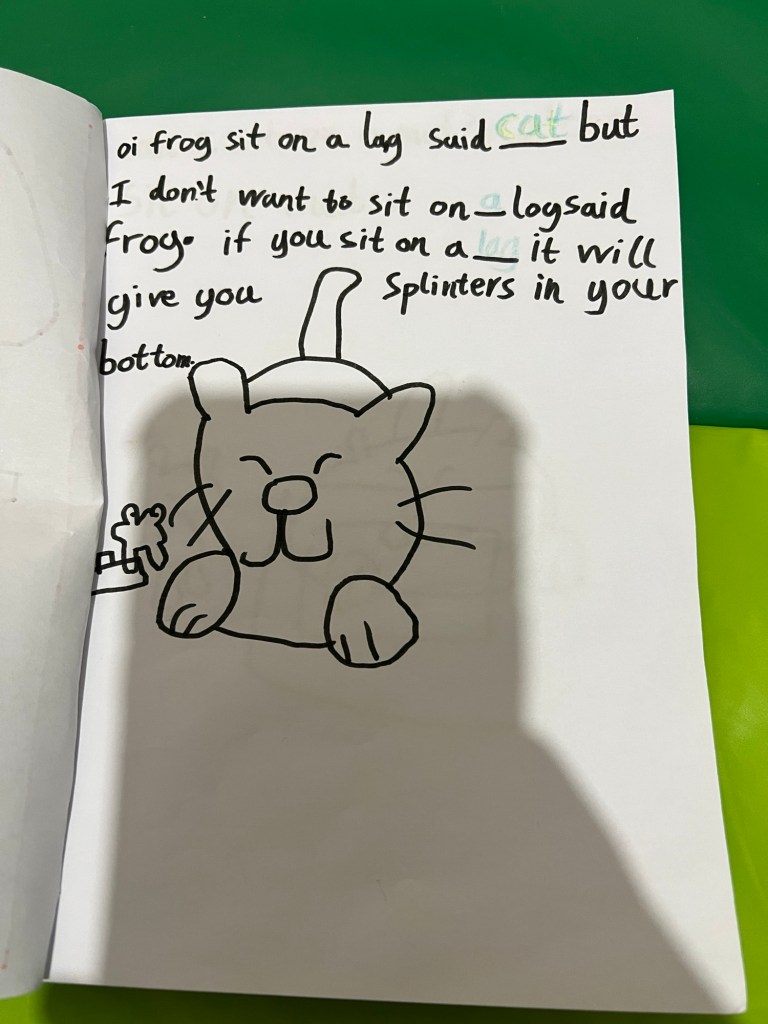 oi frog sit on a log said cat but
I don't want to sit on a log said
frog. if you sit on a log it will
give you splinters in your
bottom.